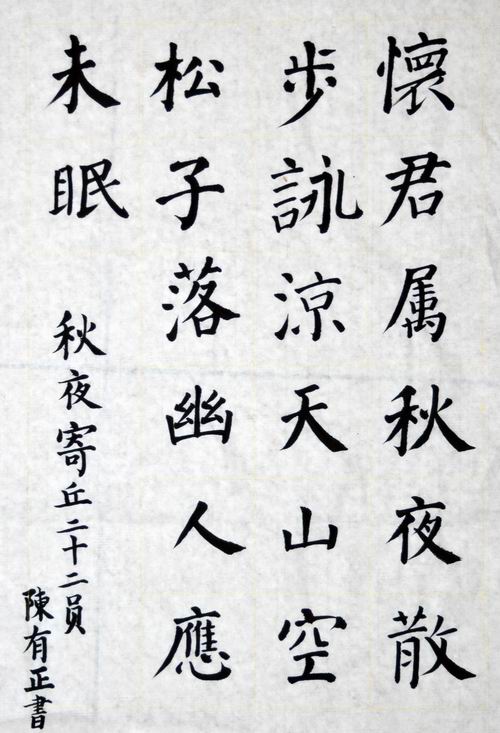 懷君属秋夜散
步詠涼天山空
松子落幽人應
未眠
秋夜寄丘二十二員
陳有正書